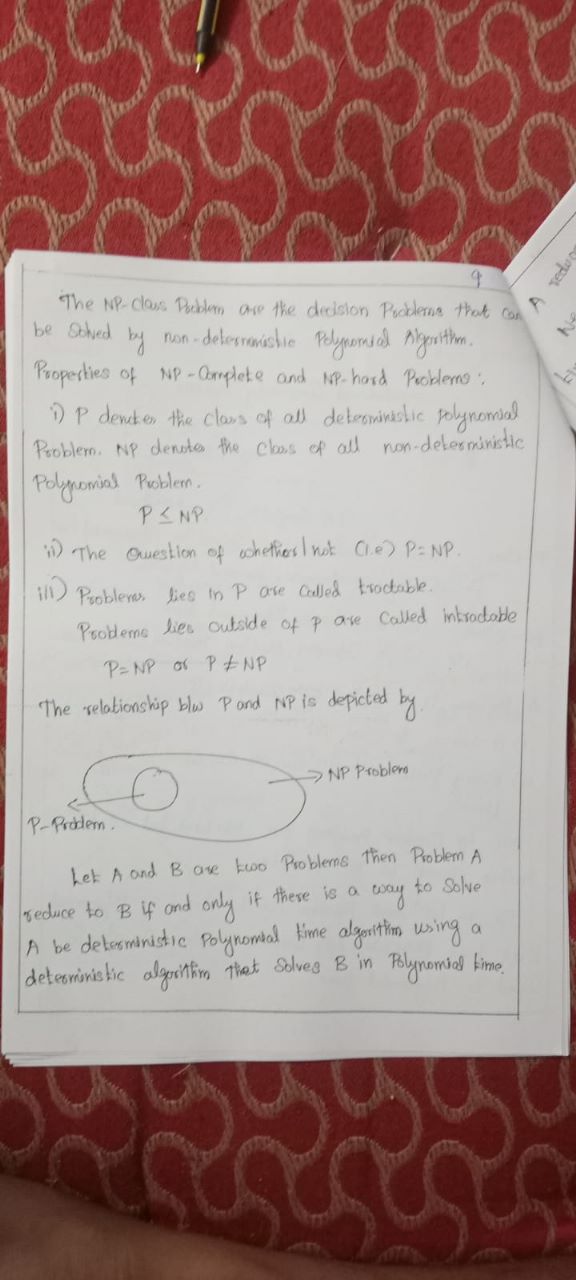 9
The NP-Class Problem are the decision Problems that can
be Solved by non-deterministic Polynomial Algorithm.
Properties of NP-Complete and NP-hard Problems:
i) P denotes the class of all deterministic polynomial
Problem. NP denotes the Class of all non-deterministic
Polynomial Problem.
P ≤ NP
ii) The Question of whether/not (i.e) P=NP.
iii) Problems lies in P are called tractable.
Problems lies outside of P are Called intractable
P=NP or P≠NP
The relationship b/w P and NP is depicted by.
NP Problem
P-Problem.
Let A and B are two Problems then Problem A
reduce to B if and only if there is a way to Solve
A be deterministic Polynomial time algorithm using a
deterministic algorithm that Solves B in Polynomial time.
A reduc
Ne